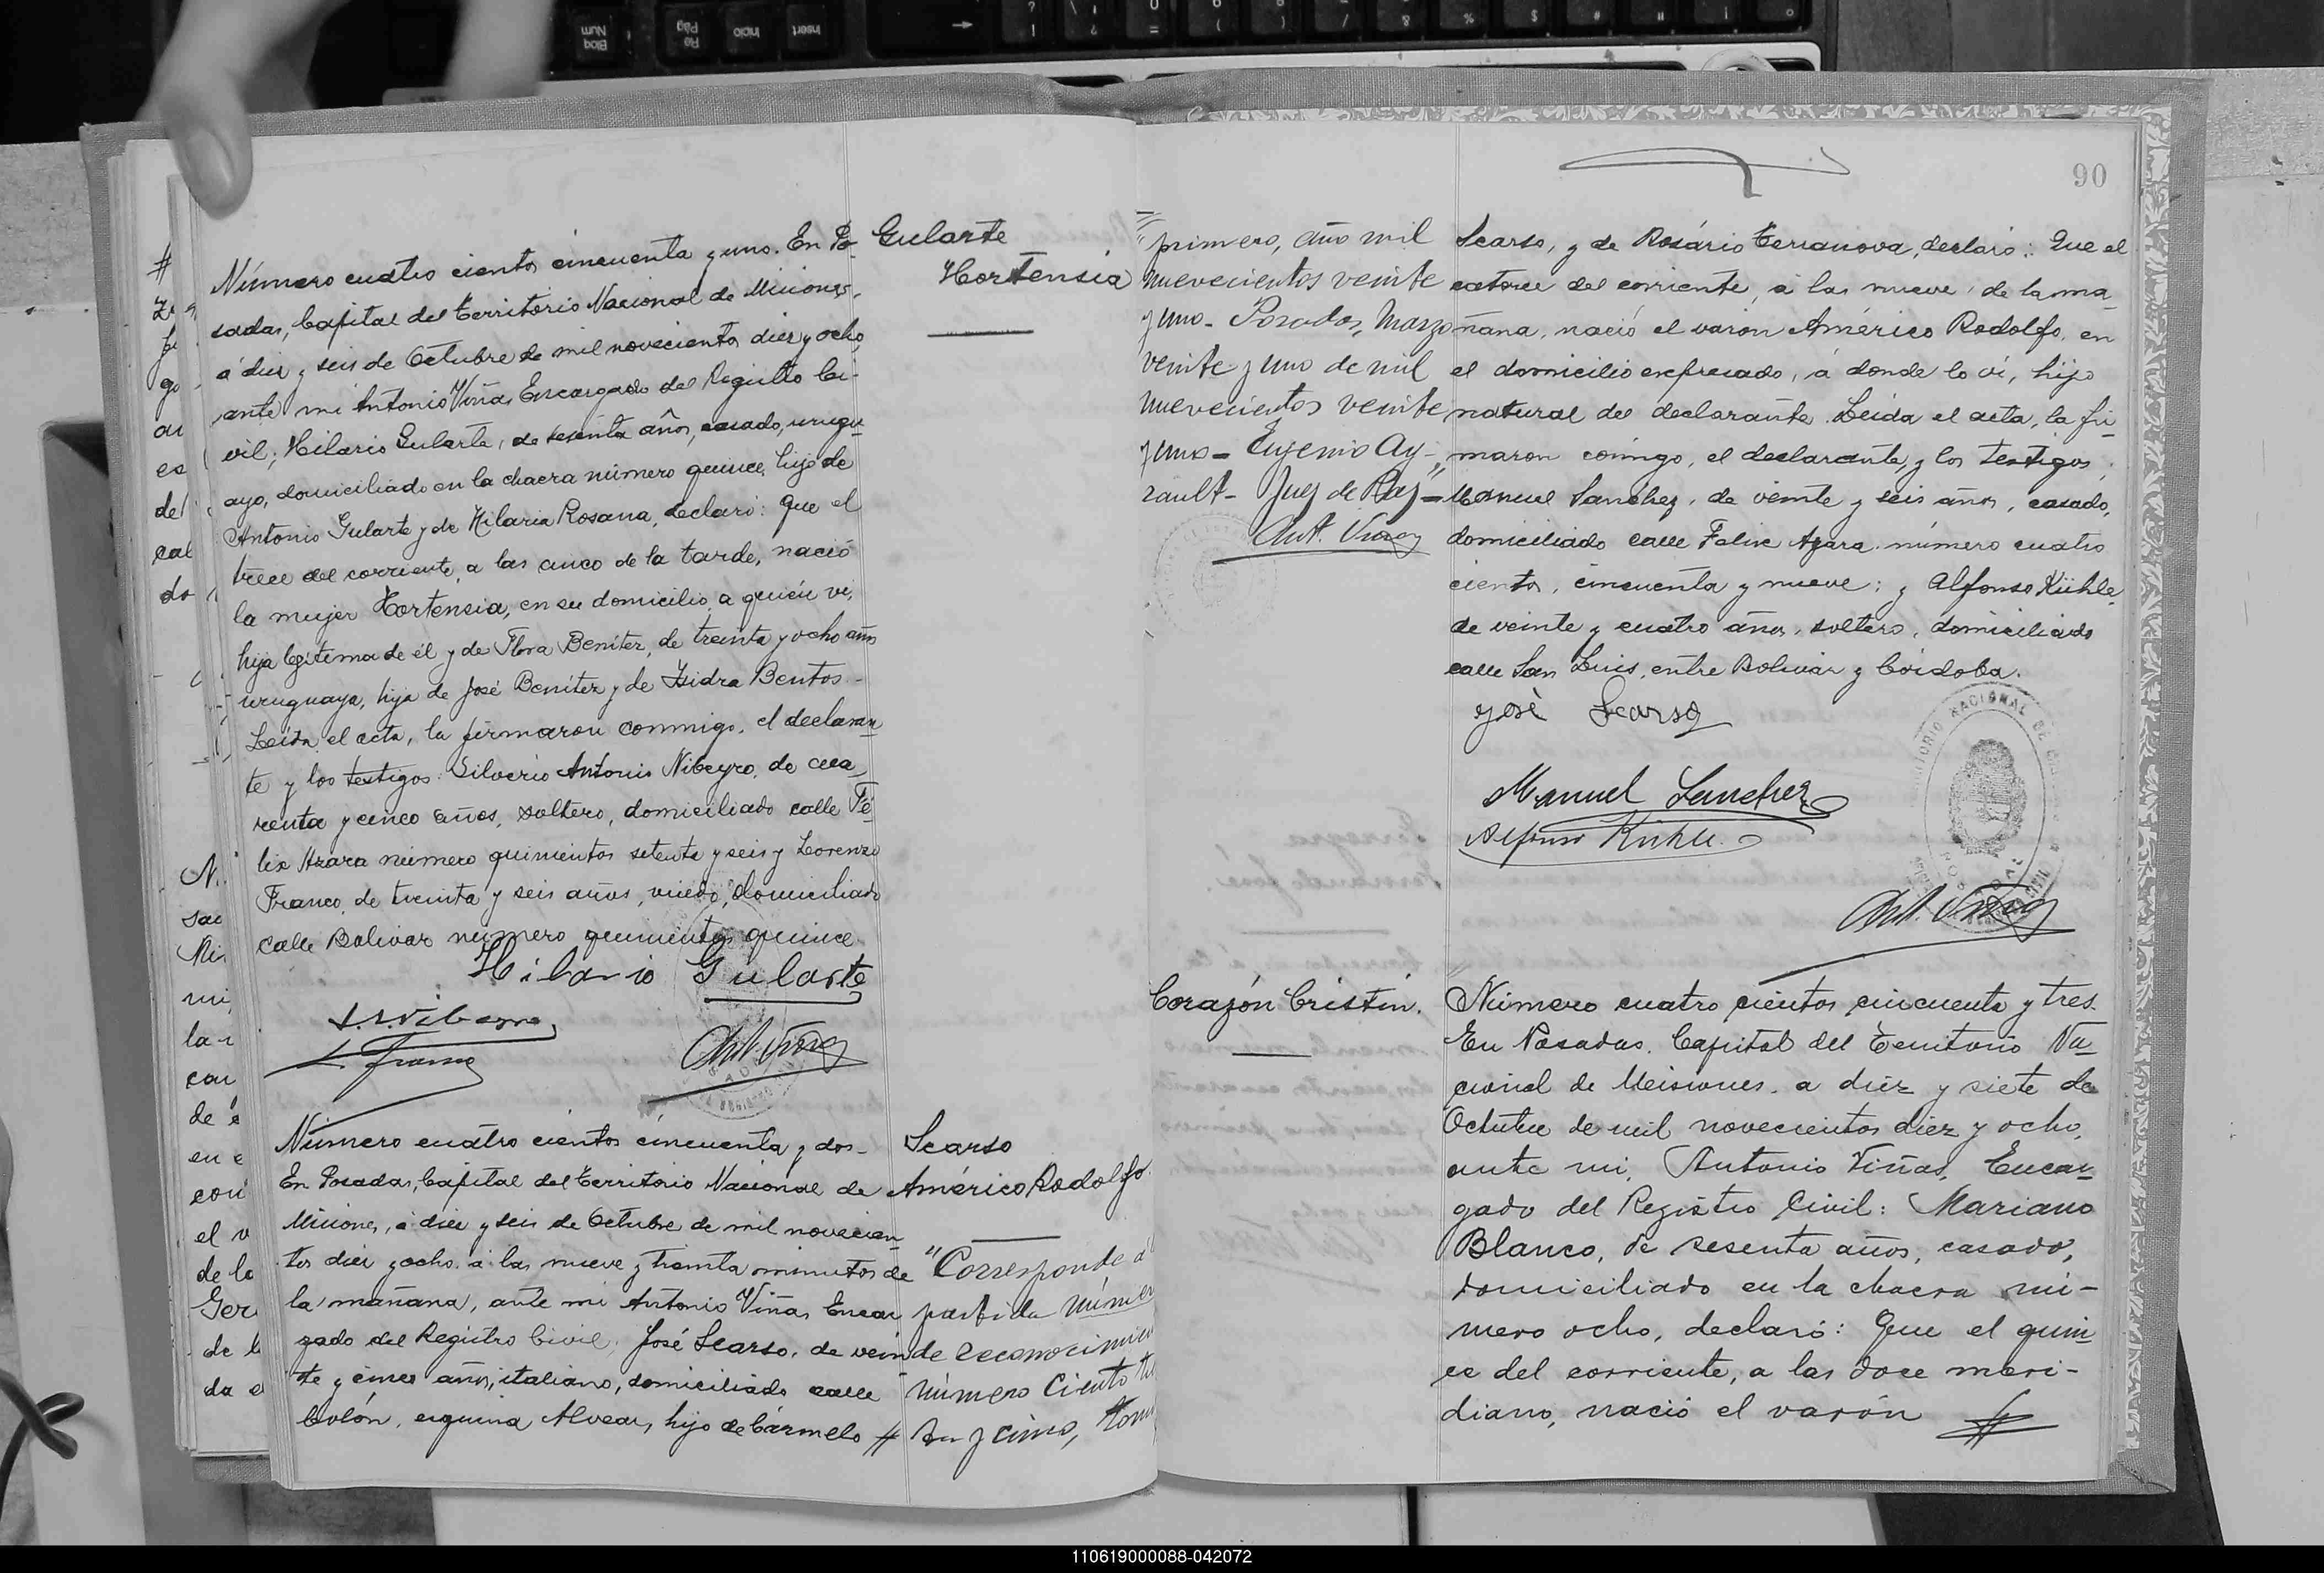 Número cuatro cientos cincuenta y uno. En Po-
sadas, Capital del Territorio Nacional de Misiones,
á diez y seis de Octubre de mil novecientos diez y ocho,
ante mi Antonio Viñas Encargado del Registro Ci-
vil; Hilario Gularte, de sesenta años, casado, urugu-
ayo, domiciliado en la chacra número quince, hijo de
Antonio Gularte y de Hilaria Rosana, declaró: Que el
trece del corriente, a las cinco de la tarde, nació
la mujer Hortensia, en su domicilio, a quien vi,
hija legítima de él y de Flora Benítez, de treinta y ocho años
uruguaya, hija de José Benítez y de Isidra Bentos.-
Leída el acta, la firmaron conmigo, el declaran-
te y los testigos: Silverio Antonio Nibeyro, de cua-
renta y cinco años, soltero, domiciliado calle Fé-
lix Azara número quinientos setenta y seis y Lorenzo
Franco, de treinta y seis años, viudo, domiciliado
calle Bolivar número quinientos quince
Hilario Gularte
L. Franco
Ant. Viñas
Gularte
Hortensia
Número cuatro cientos cincuenta y dos.-
En Posadas, Capital del Territorio Nacional de
Misiones, á diez y seis de Octubre de mil novecien-
tos diez y ocho, á las nueve y treinta minutos de
la mañana, ante mi Antonio Viñas Encar-
gado del Registro Civil, José Scarso, de vein-
te y cinco años, italiano, domiciliado calle
Colón, esquina Alvear, hijo de Cármelo #
Scarso
Américo Rodolfo.
"Corresponde á
partida númer
de reconocimien
número Ciento
y cinco, tomo
90
primero, año mil
nuevecientos veinte
y uno- Posadas, Marzo
veinte y uno de mil
nuevecientos veinte
y uno- Eugenio Ay-
rault- Juez de Paz-"
Ant. Viñas
Scarso, y de Rosário Terranova, declaró: Que el
catorce del corriente, á las nueve de la ma-
ñana, nació el varon Américo Rodolfo, en
el domicilio expresado, á donde lo ví, hijo
natural del declarante. Leída el acta, la fir-
maron conmigo, el declarante, y los testigos,
Manuel Sanchez, de veinte y seis años, casado,
domiciliado calle Felix Azara número cuatro
cientos, cincuenta y nueve; y Alfonso Kühle,
de veinte y cuatro años, soltero, domiciliado
calle San Luis, entre Bolivar y Córdoba.
José Scarso
Manuel Sanchez
Alfonso Kühle
Ant. Viñas
Corazón Cristín.
Número cuatro cientos cincuenta y tres.
En Posadas, Capital del Territorio Na-
cional de Misiones, a diez y siete de
Octubre de mil novecientos diez y ocho,
ante mi, Antonio Viñas, Encar-
gado del Registro Civil: Mariano
Blanco, de sesenta años, casado,
domiciliado en la chacra nú-
mero ocho, declaró: Que el quin-
ce del corriente, a las doce meri-
diano, nació el varón #
110619000088-042072